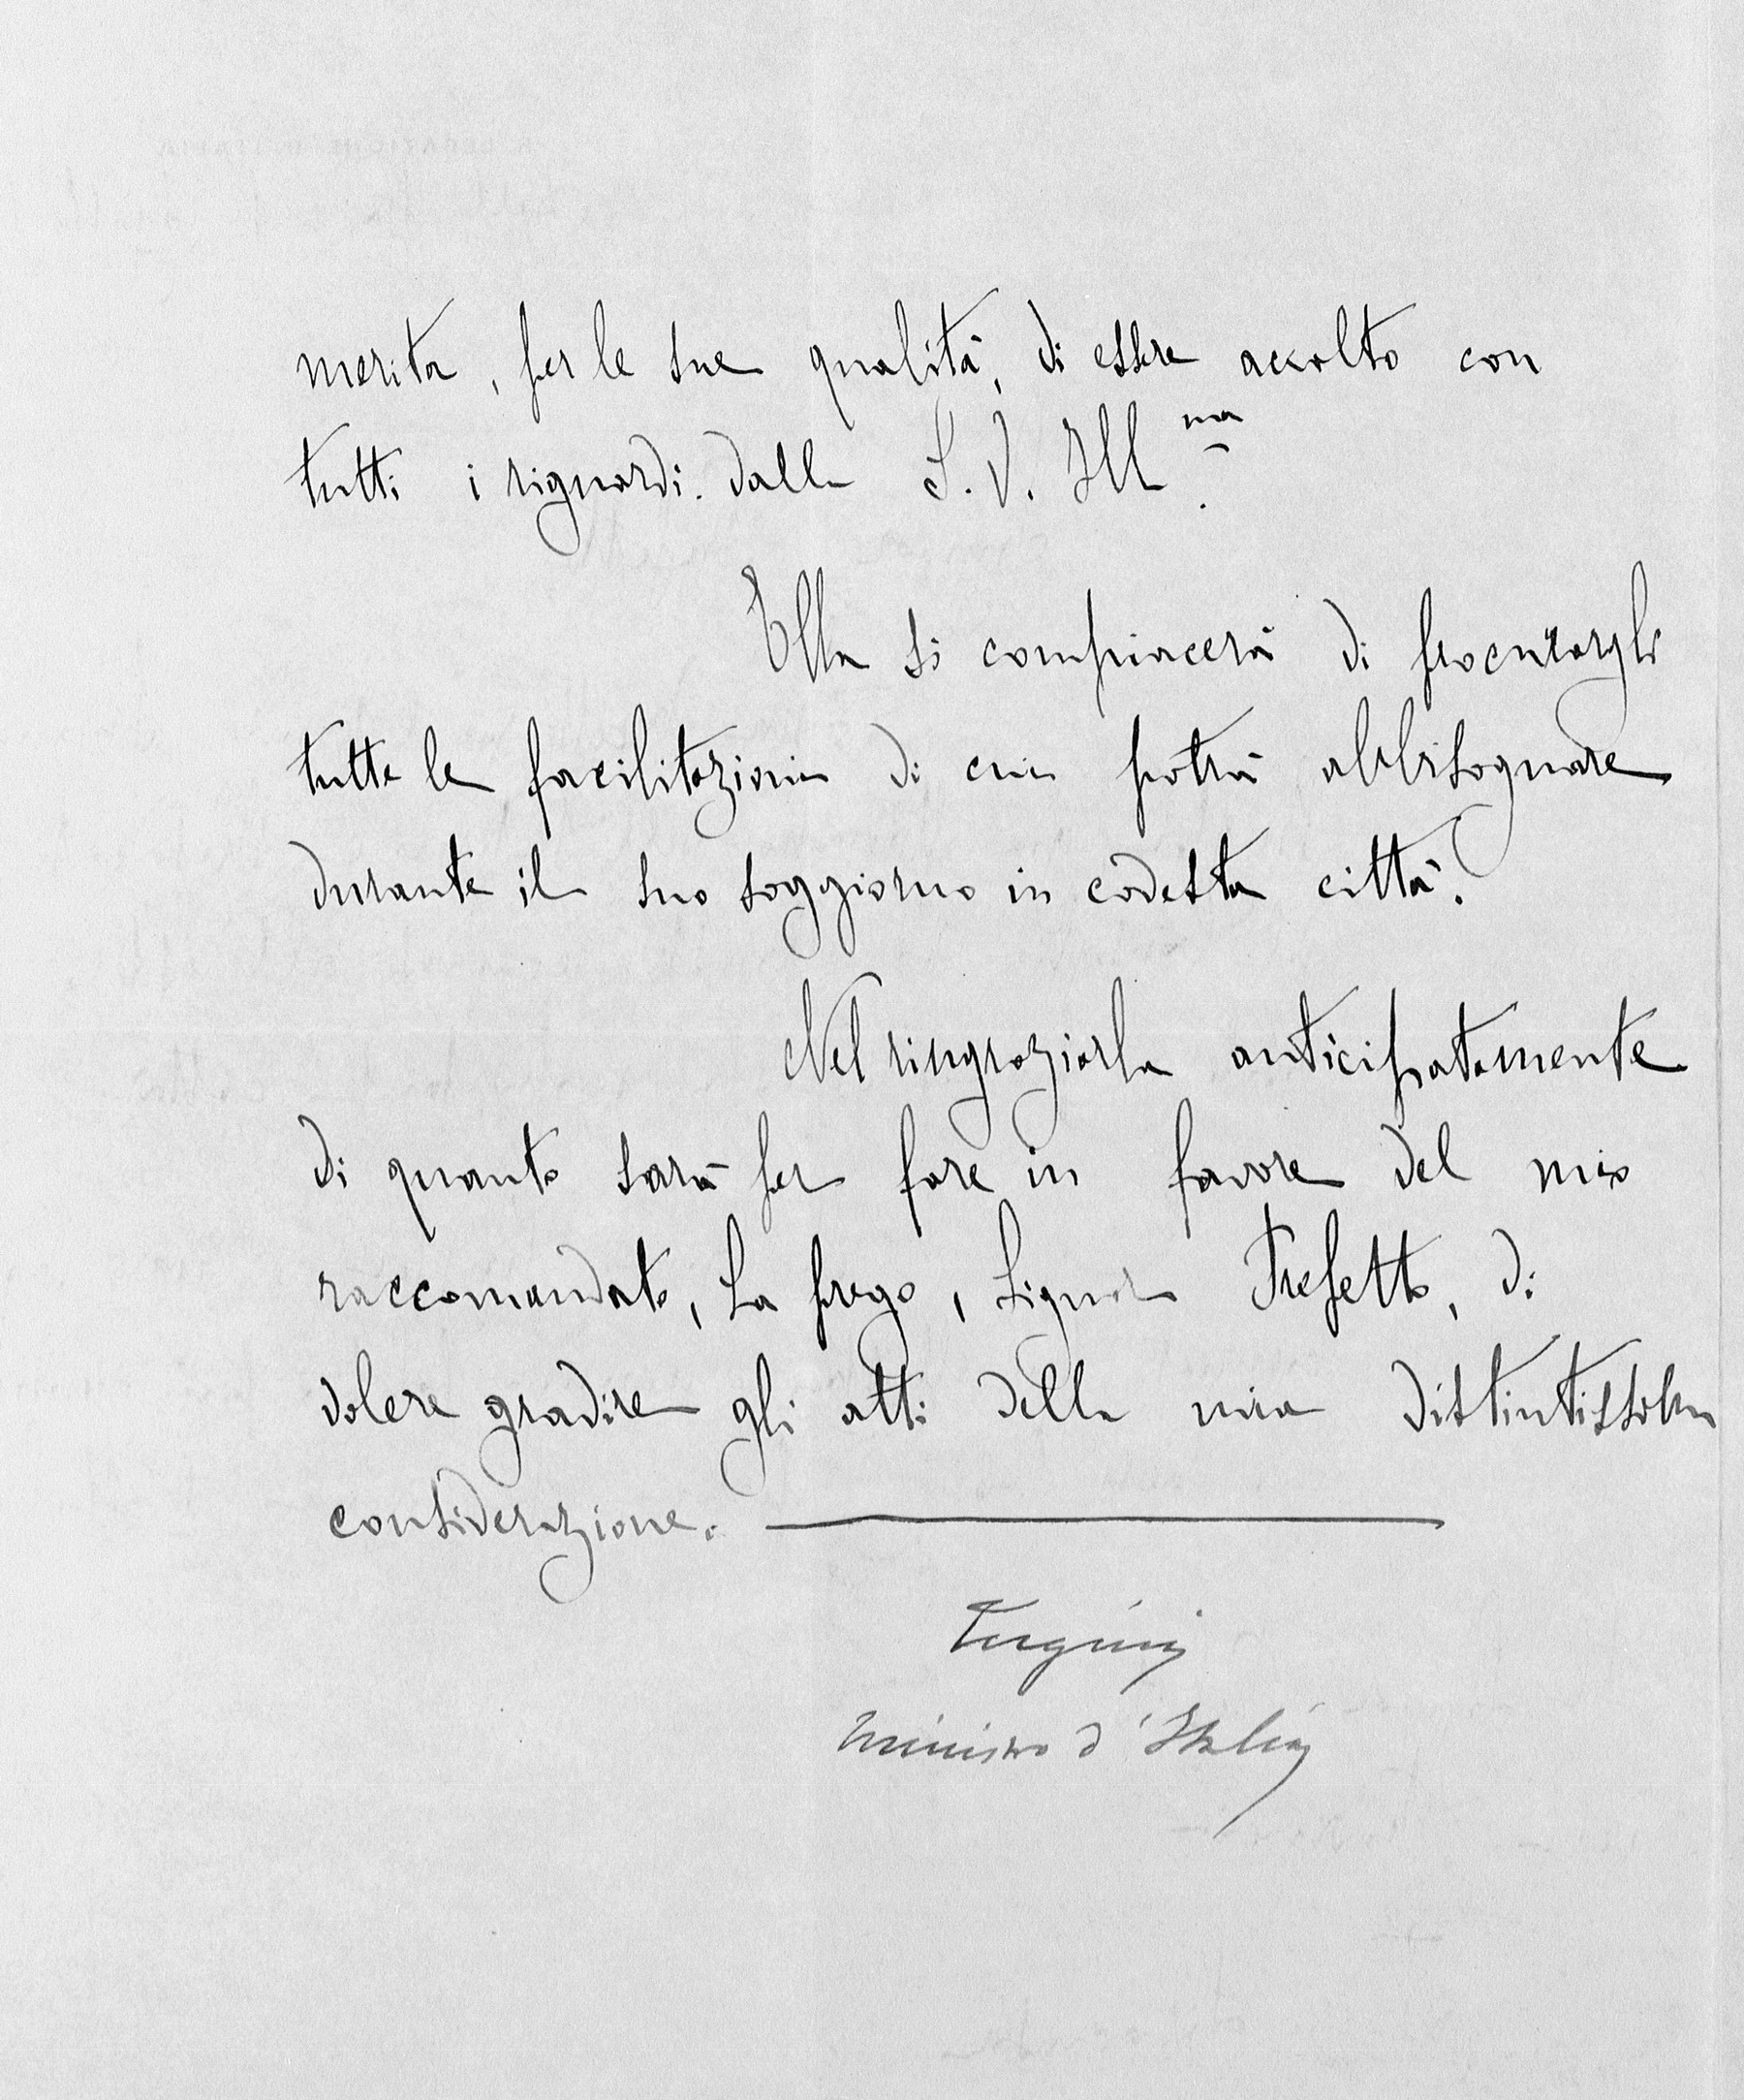 merita, per le sue qualità, di essere accolto con
tutti i riguardi dalla S. V. Ill.ma
Ella si compiacerà di procurargli
tutte le facilitazioni di cui potrà abbisognare
durante il suo soggiorno in codesta città.
Nel ringraziarla anticipatamente
di quanto sarà per fare in favore del mio
raccomandato, La prego, Signor Prefetto, di
volere gradire gli atti della mia distintissima
considerazione.
Ministro d'Italia